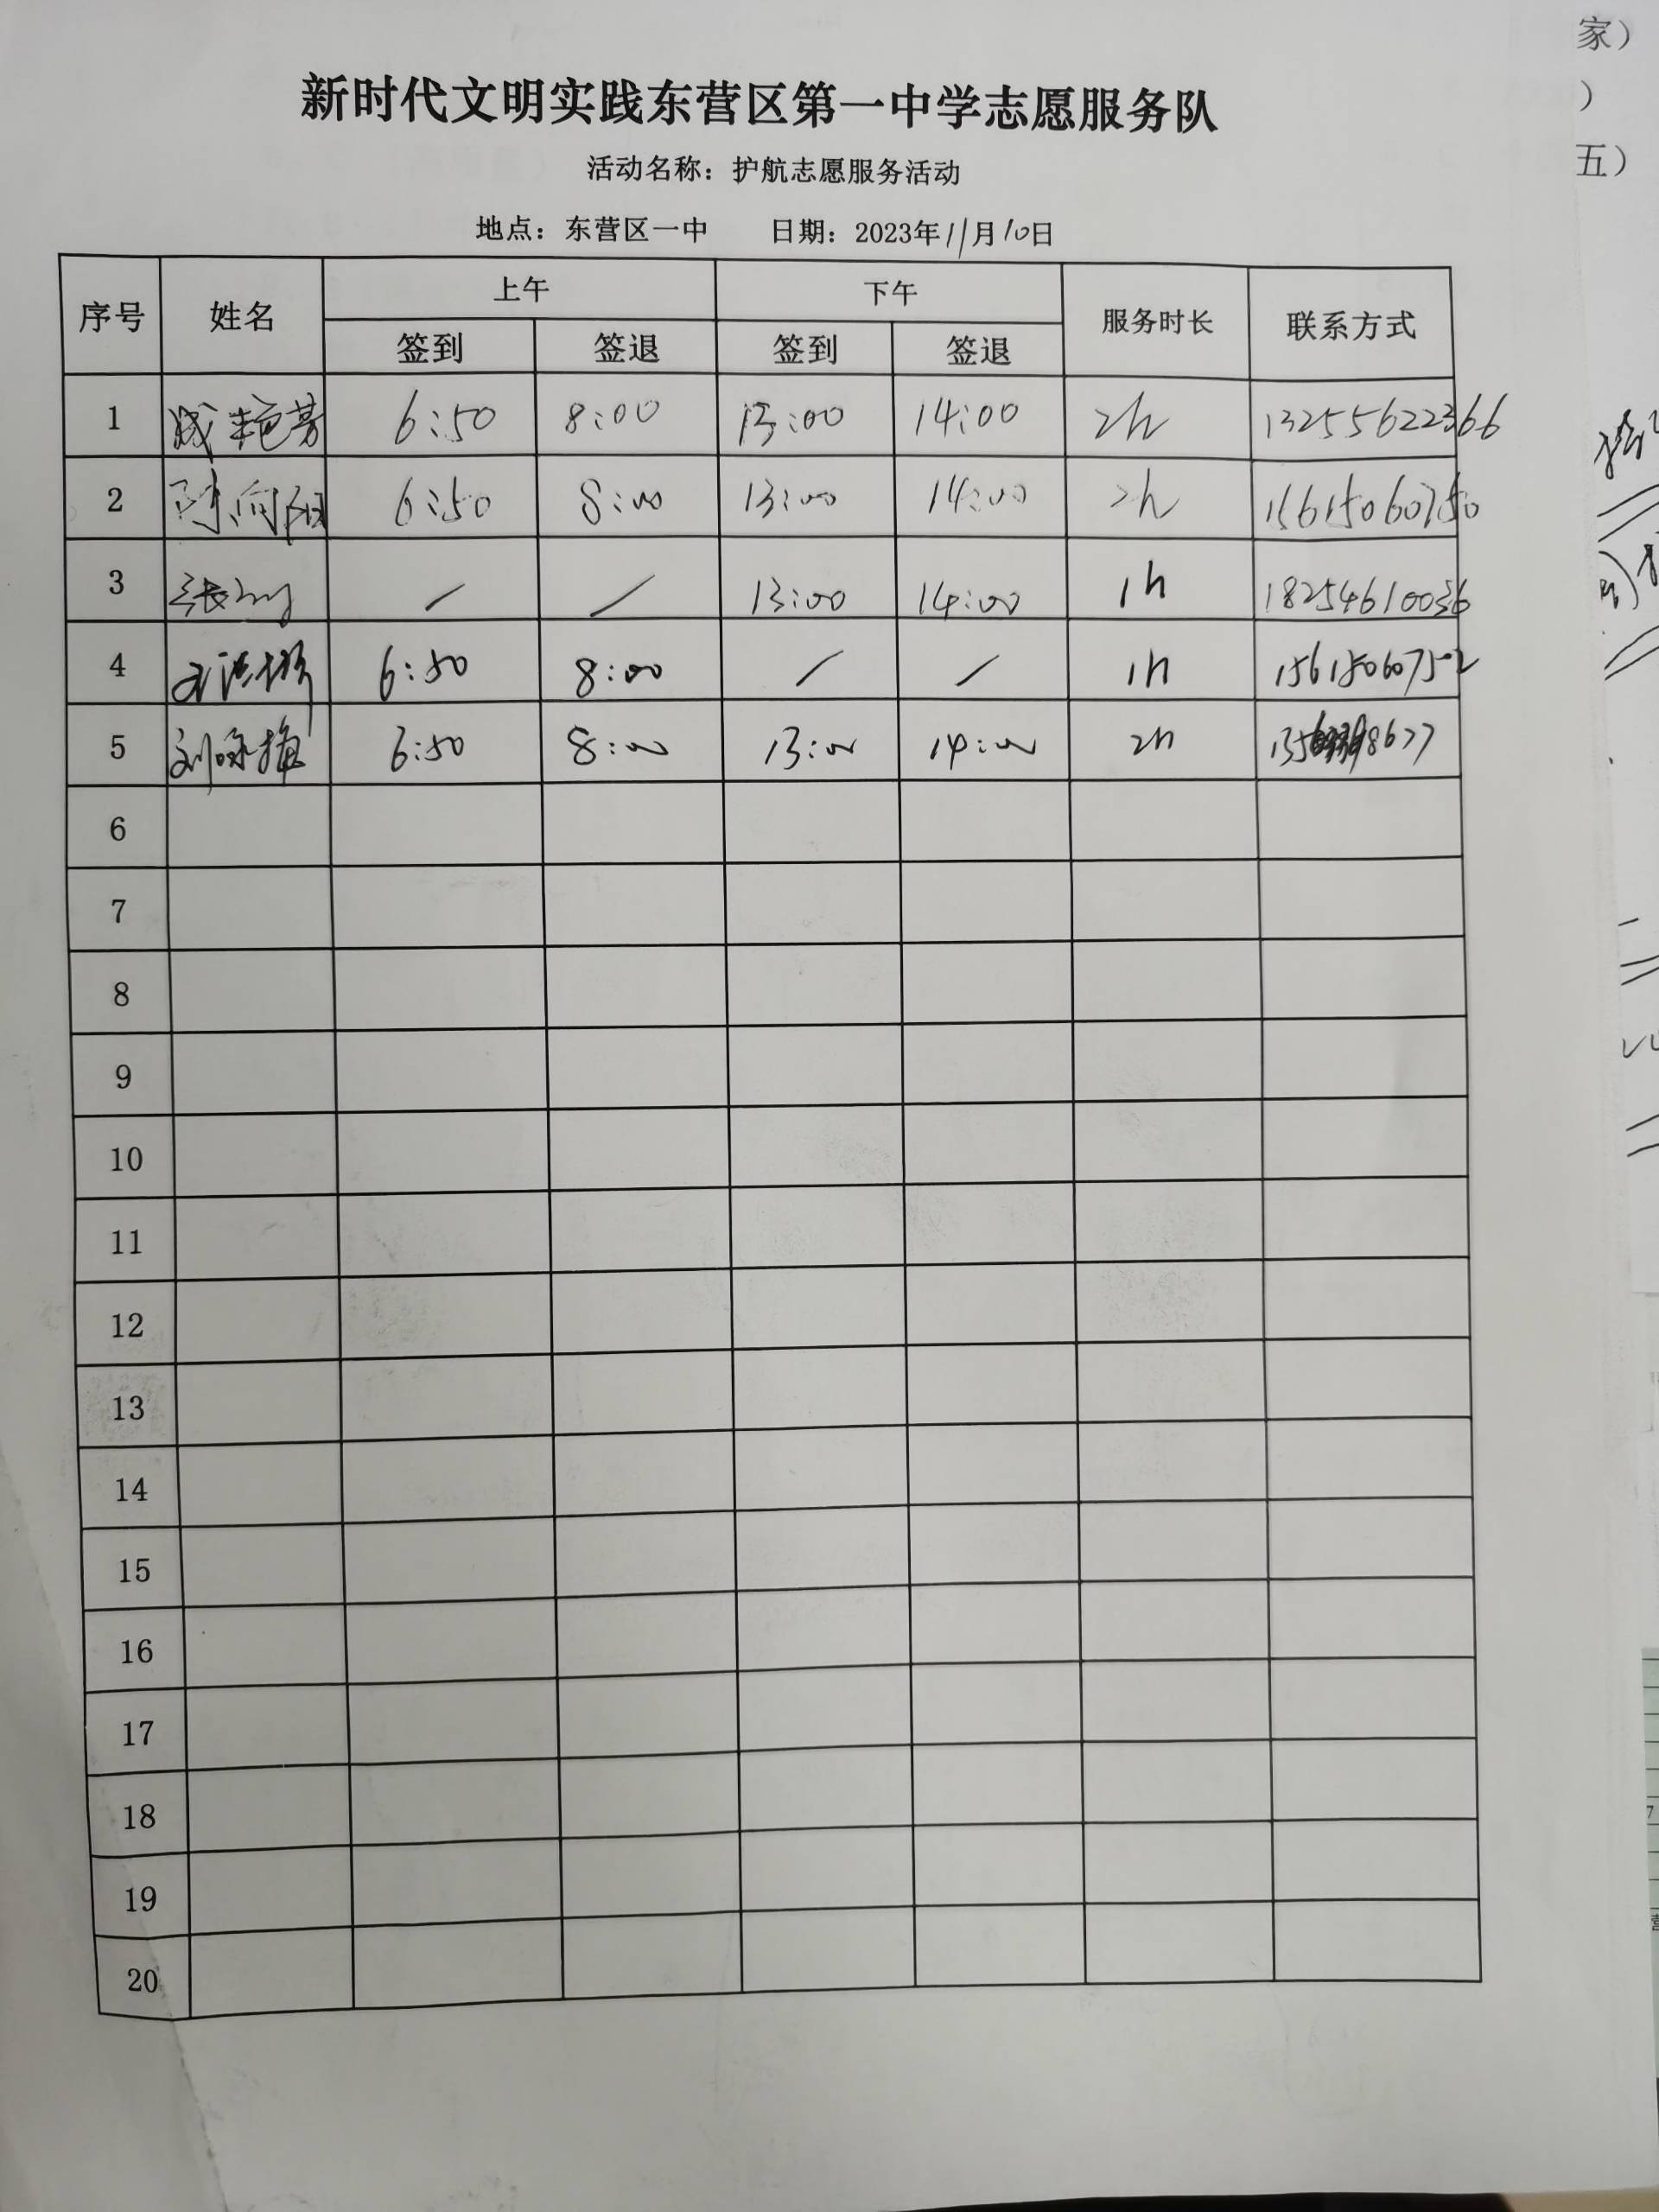 新时代文明实践东营区第一中学志愿服务队
活动名称：护航志愿服务活动
地点：东营区一中 日期：2023年11月10日
序号 姓名 上午 下午 服务时长 联系方式
签到 签退 签到 签退
1 艳芳 6:50 8:00 13:00 14:00 2h 13255622366
2 陈向阳 6:50 8:00 13:00 14:00 2h 15615060750
3 张 / / 13:00 14:00 1h 18254610036
4 6:50 8:00 / / 1h 156150607502
5 刘咏梅 6:50 8:00 13:00 14:00 2h
6
7
8
9
10
11
12
13
14
15
16
17
18
19
20
家）
）
五）